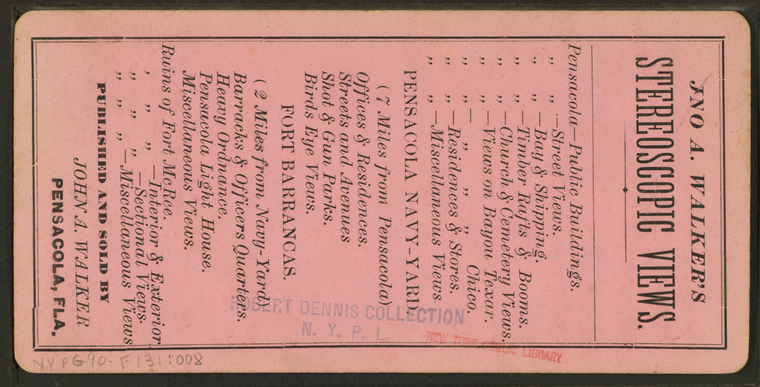 JNO A. WALKER'S
STEREOSCOPIC VIEWS.
Pensacola—Public Buildings.
„ „ —Street Views.
„ „ —Bay & Shipping.
„ „ —Timber Rafts & Booms.
„ „ —Church & Cemetery Views.
„ „ —Views on Bayou Texar.
„ „ — „ „ „ Chico.
„ „ —Residences & Stores.
„ „ —Miscellaneous Views.
PENSACOLA NAVY-YARD
(7 Miles from Pensacola)
Offices & Residences.
Streets and Avenues
Shot & Gun Parks.
Birds Eye Views.
FORT BARRANCAS.
(2 Miles from Navy-Yard)
Barracks & Officers Quarters.
Heavy Ordnance.
Pensacola Light House.
Miscellaneous Views.
Ruins of Fort McRee.
„ „ „ —Interior & Exterior
„ „ „ —Sectional Views.
„ „ „ —Miscellaneous Views
PUBLISHED AND SOLD BY
JOHN A. WALKER
PENSACOLA, FLA.
ROBERT DENNIS COLLECTION
N. Y. P. L.
NEW YORK PUBLIC LIBRARY
NYPG90-F131:008